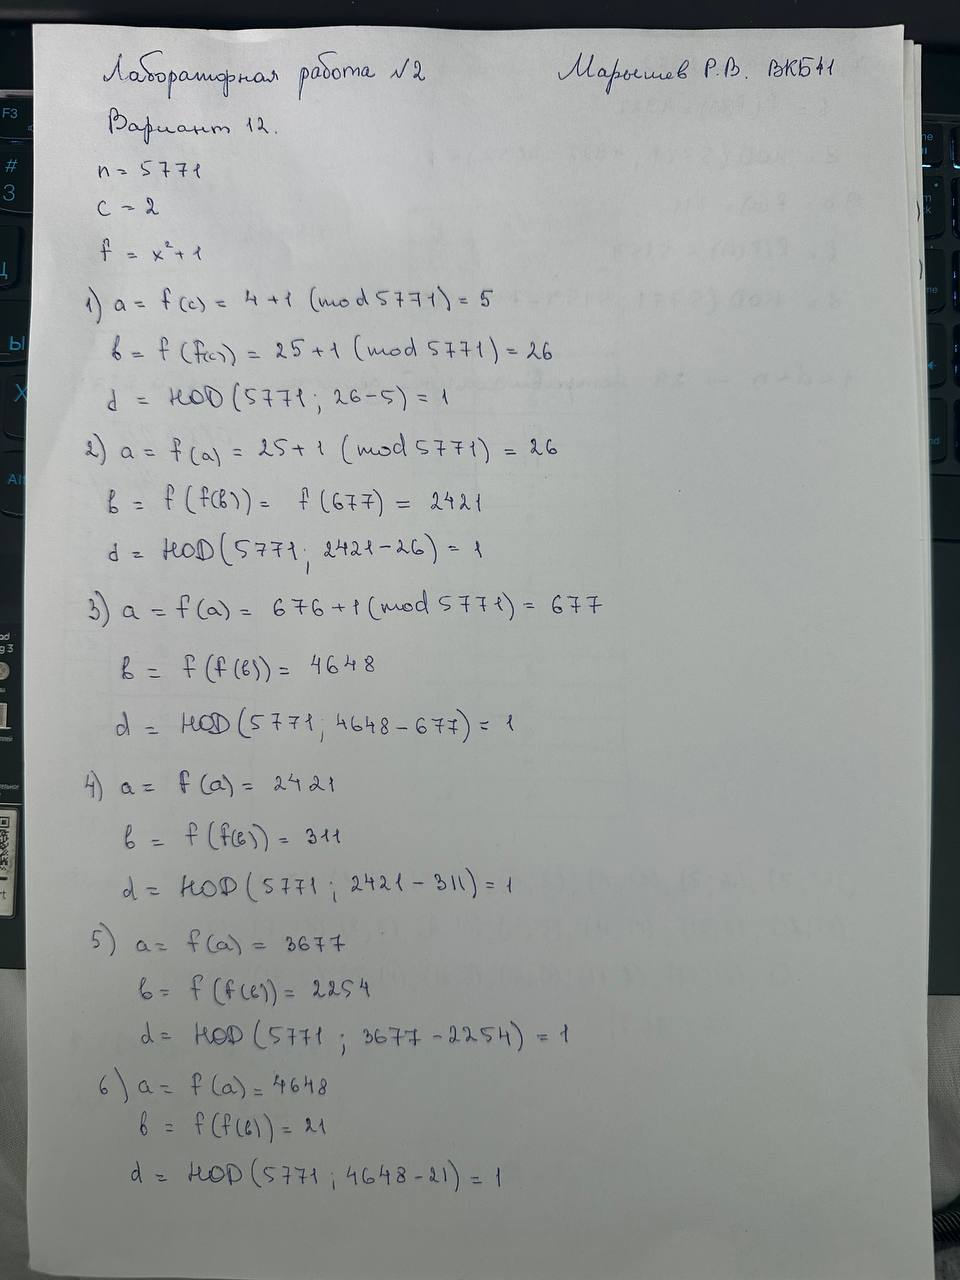 Лабораторная работа №2 Марышев Р.В. ВКБ41
Вариант 12.
n = 5771
c = 2
f = x² + 1
1) a = f(c) = 4+1 (mod 5771) = 5
b = f(f(c)) = 25+1 (mod 5771) = 26
d = НОD(5771; 26-5) = 1
2) a = f(a) = 25+1 (mod 5771) = 26
b = f(f(b)) = f(677) = 2421
d = НОD(5771; 2421-26) = 1
3) a = f(a) = 676+1 (mod 5771) = 677
b = f(f(b)) = 4648
d = НОD(5771; 4648-677) = 1
4) a = f(a) = 2421
b = f(f(b)) = 311
d = НОD(5771; 2421-311) = 1
5) a = f(a) = 3677
b = f(f(b)) = 2254
d = НОD(5771; 3677-2254) = 1
6) a = f(a) = 4648
b = f(f(b)) = 21
d = НОD(5771; 4648-21) = 1